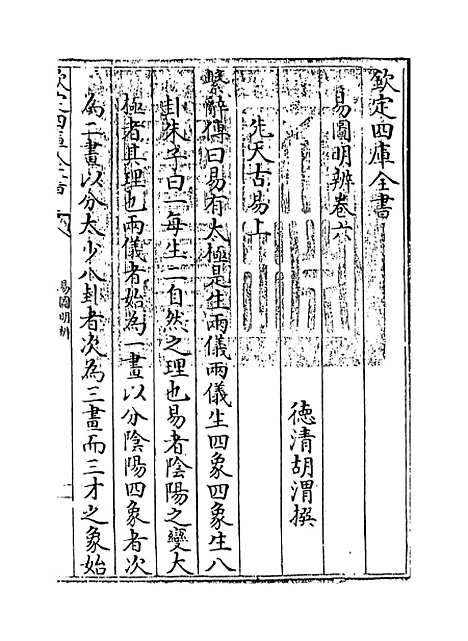 欽定四庫全書
易圖明辨卷六
德清胡渭撰
先天古易上
繫辭傳曰易有太極是生兩儀兩儀生四象四象生八
卦朱子曰一每生二自然之理也易者陰陽之變大
極者其理也兩儀者始為一畫以分陰陽四象者次
為二畫以分太少八卦者次為三畫而三才之象始
易圖明辨